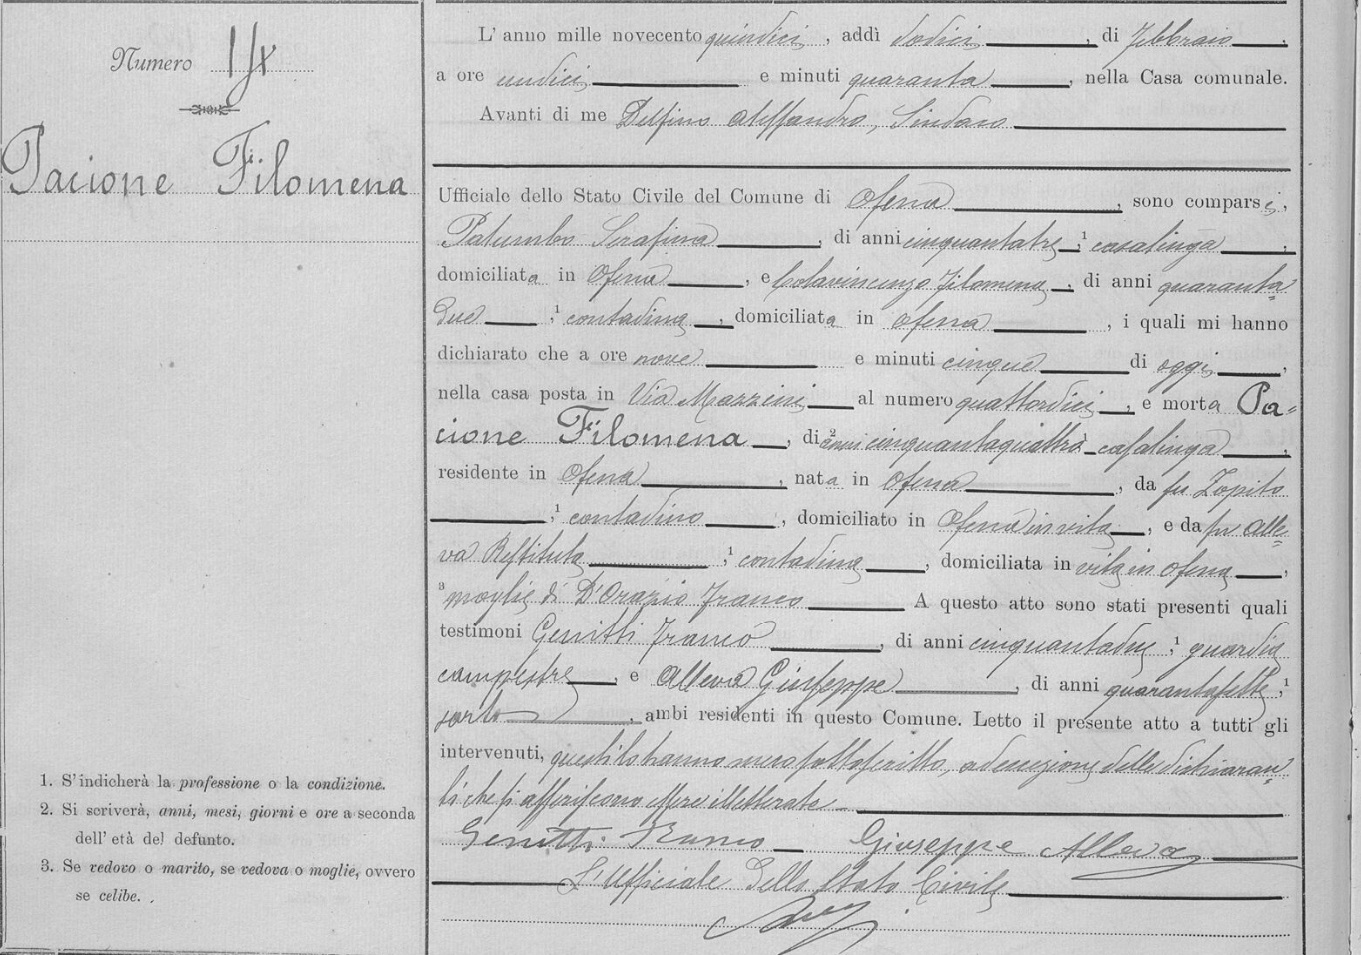 Numero
Pacione Filomena
1. S'indicherà la professione o la condizione.
2. Si scriverà, anni, mesi, giorni e ore a seconda
dell'età del defunto.
3. Se vedovo o marito, se vedova o moglie, ovvero
se celibe.
L'anno mille novecento quindici, addì dodici, di Febbraio,
a ore undici e minuti quaranta, nella Casa comunale.
Avanti di me Delfino Alessandro, Sindaco
Ufficiale dello Stato Civile del Comune di Ofena, sono comparse,
Palumbo Serafina, di anni cinquantatre,¹ casalinga,
domiciliata in Ofena, e Colavincenzo Filomena, di anni quaranta=
due,¹ contadina, domiciliata in Ofena, i quali mi hanno
dichiarato che a ore nove e minuti cinque di oggi,
nella casa posta in Via Mazzini al numero quattordici, è morta Pa=
cione Filomena, di ²anni cinquantaquattro ¹ casalinga,
residente in Ofena, nata in Ofena, da fu Zopito
,¹ contadino, domiciliato in Ofena in vita, e da fu Alle=
va Restituta,¹ contadina, domiciliata in vita in Ofena,
³ moglie di D'Orazio Franco A questo atto sono stati presenti quali
testimoni Genitti Franco, di anni cinquantadue,¹ guardia
campestre, e Alleva Giuseppe, di anni quarantasette,¹
sarto, ambi residenti in questo Comune. Letto il presente atto a tutti gli
intervenuti, questi lo hanno meco sottoscritto, ad eccezione delle dichiaran=
ti che si asseriscono essere illetterate
Genitti Franco Giuseppe Alleva
L'Ufficiale dello Stato Civile